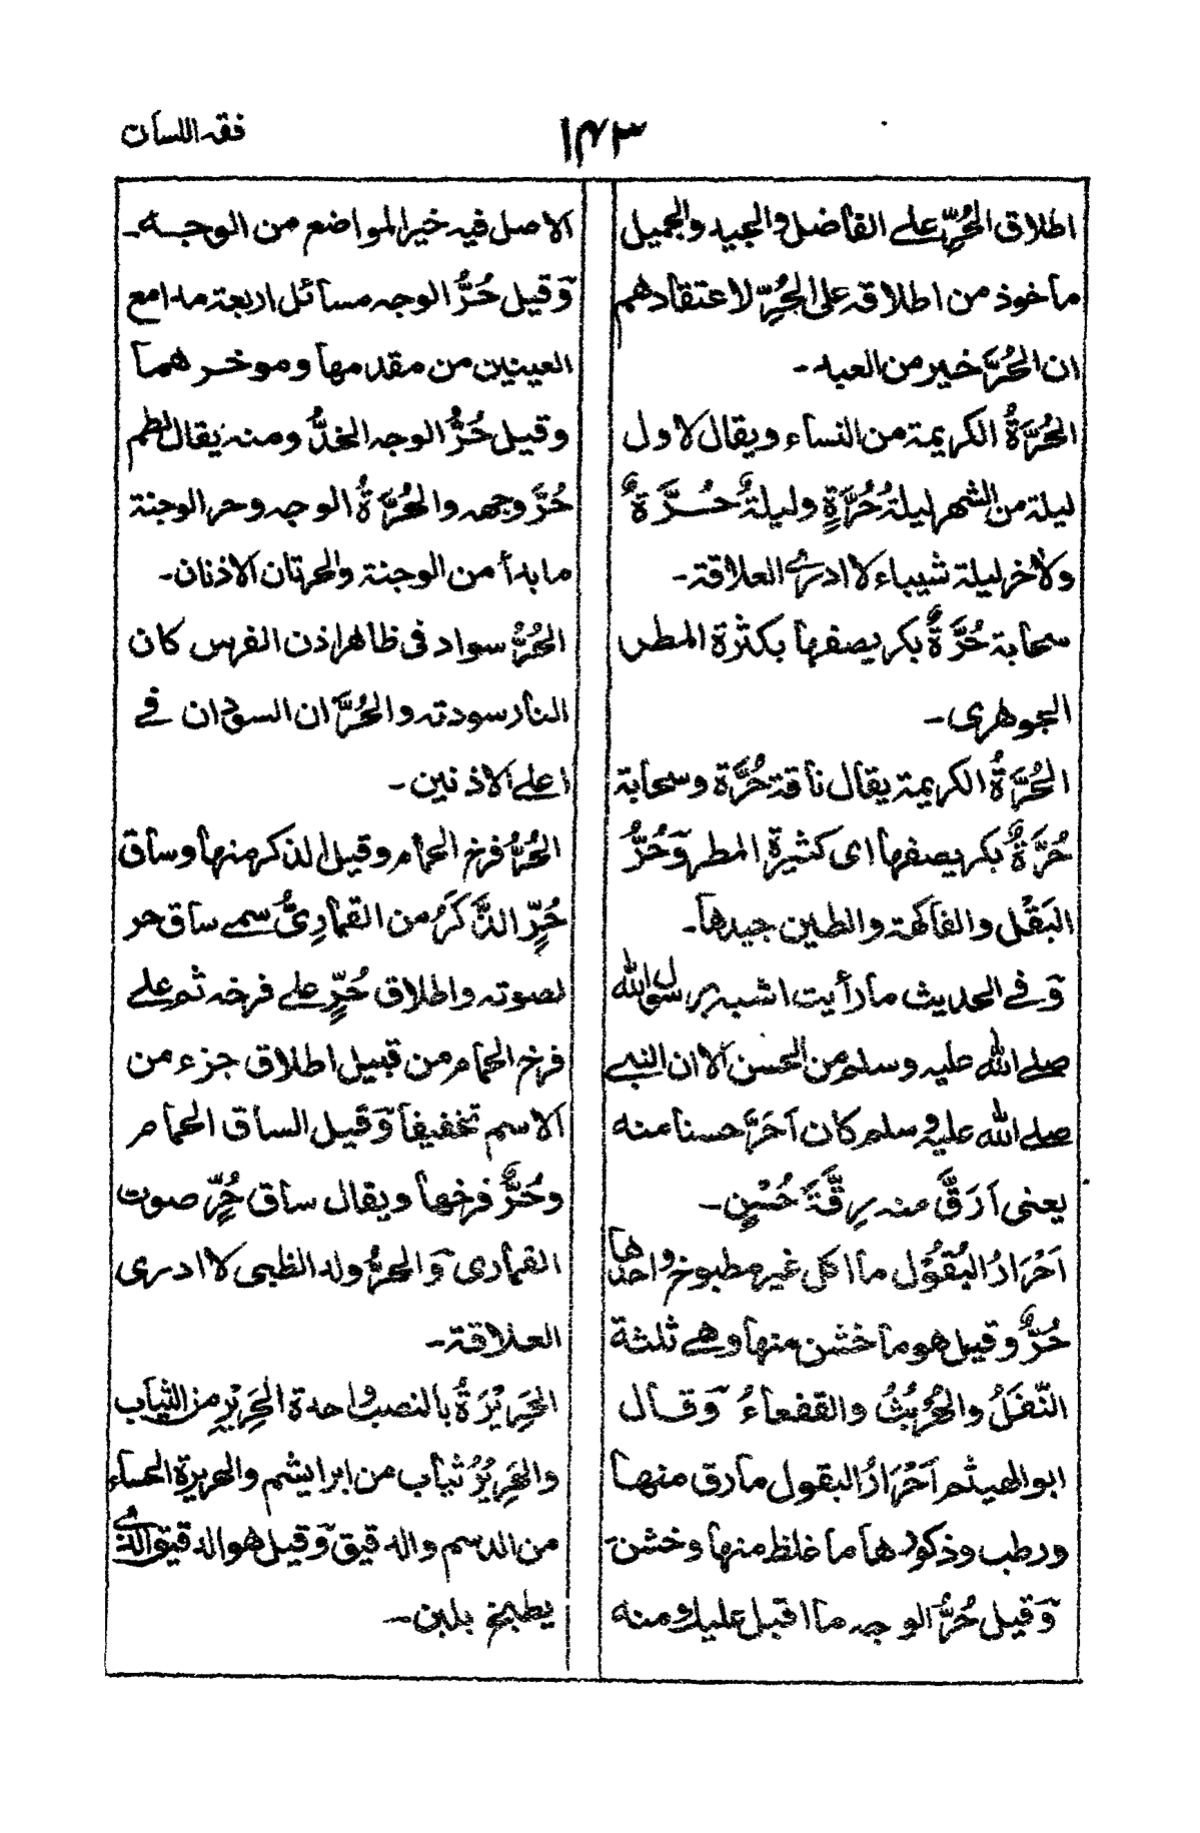 ١٤٣
فقه اللسان
اطلاق الحُرِّ على الفاضل والجيد والجميل
ماخوذ من اطلاقه على الحُرِّ لاعتقادهم
ان الحُرَّ خير من العبد۔
الحُرَّةُ الكريمة من النساء ويقال لاول
ليلة من الشهر ليلةُ حُرَّةٍ وليلةٌ حُرَّةٌ
ولأخر ليلة شيباء لا ادرى العلاقة۔
سحابة حُرَّةٌ بكر يصفها بكثرة المطر
الجوهرى۔
الحُرَّةُ الكريمة يقال ناقة حُرَّة وسحابة
حُرَّةٌ بكر يصفها اى كثيرة المطر وَحُرُّ
البَقْل والفاكهة والطين جيدها۔
وَفى الحديث مارأيت اشبه برسول الله
صلى الله عليه وسلم من الحسن الا ان النبى
صلى الله عليه وسلم كان اَحَرَّ حسنا منه
يعنى اَرَقَّ منه رِقَّةَ حُسْنٍ۔
اَحْرَارُ البُقُوْل ما اكل غير مطبوخ واحدها
حُرٌّ وقيل هو ما خشن منها وهى ثلثة
النَّفَلُ والحُرْبُثُ والقفعاءُ وَقال
ابو الهيثم اَحْرَارُ البقول مارق منها
ورطب وذكورها ما غلظ منها وخشن۔
وَقيل حُرُّ الوجه ما اقبل عليك ومنه
الاصل فيه خير المواضع من الوجه۔
وَقيل حُرُّ الوجه مسائل اربعة مدامع
العينين من مقدمها وموخرهما
وقيل حُرُّ الوجه الخدُّ ومنه يقال لطم
حُرَّ وجهه والحُرَّةُ الوجه وحر الوجنة
مابدأ من الوجنة والحرتان الاذنان۔
الحُرُّ سواد فى ظاهر اذن الفرس كان
النار سودته والحُرَّان السوادان فى
اعلى الاذنين۔
الحُرُّ فرخ الحمام وقيل الذكر منها وساق
حُرٍّ الذَّكَرُ من القمارِىُّ سمى ساق حر
لصوته واطلاق حُرٍّ على فرخه ثم على
فرخ الحمام من قبيل اطلاق جزء من
الاسم تخفيفا وَقيل الساق الحمام
وحُرٌّ فرخها ويقال ساق حُرٍّ صوت
القمارى وَالحرُّ ولد الظبى لا ادرى
العلاقة۔
الحَرِيْرَةُ بالنصب واحدة الحَرِيْرِ من الثياب
والحَرِيْرُ ثياب من ابرايشم والحريرة الحساء
من الدسم والدقيق وَقيل هو الدقيق الذى
يطبخ بلبن۔